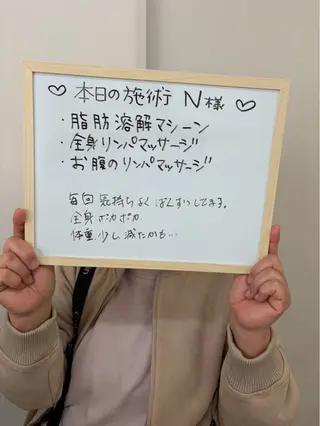 ♡ 本日の施術 N様 ♡
・脂肪溶解マシーン
・全身リンパマッサージ
・お腹のリンパマッサージ
毎回 気持ちよく ばくすいしてます。
全身 ポカポカ
体重 少し 減たかも…